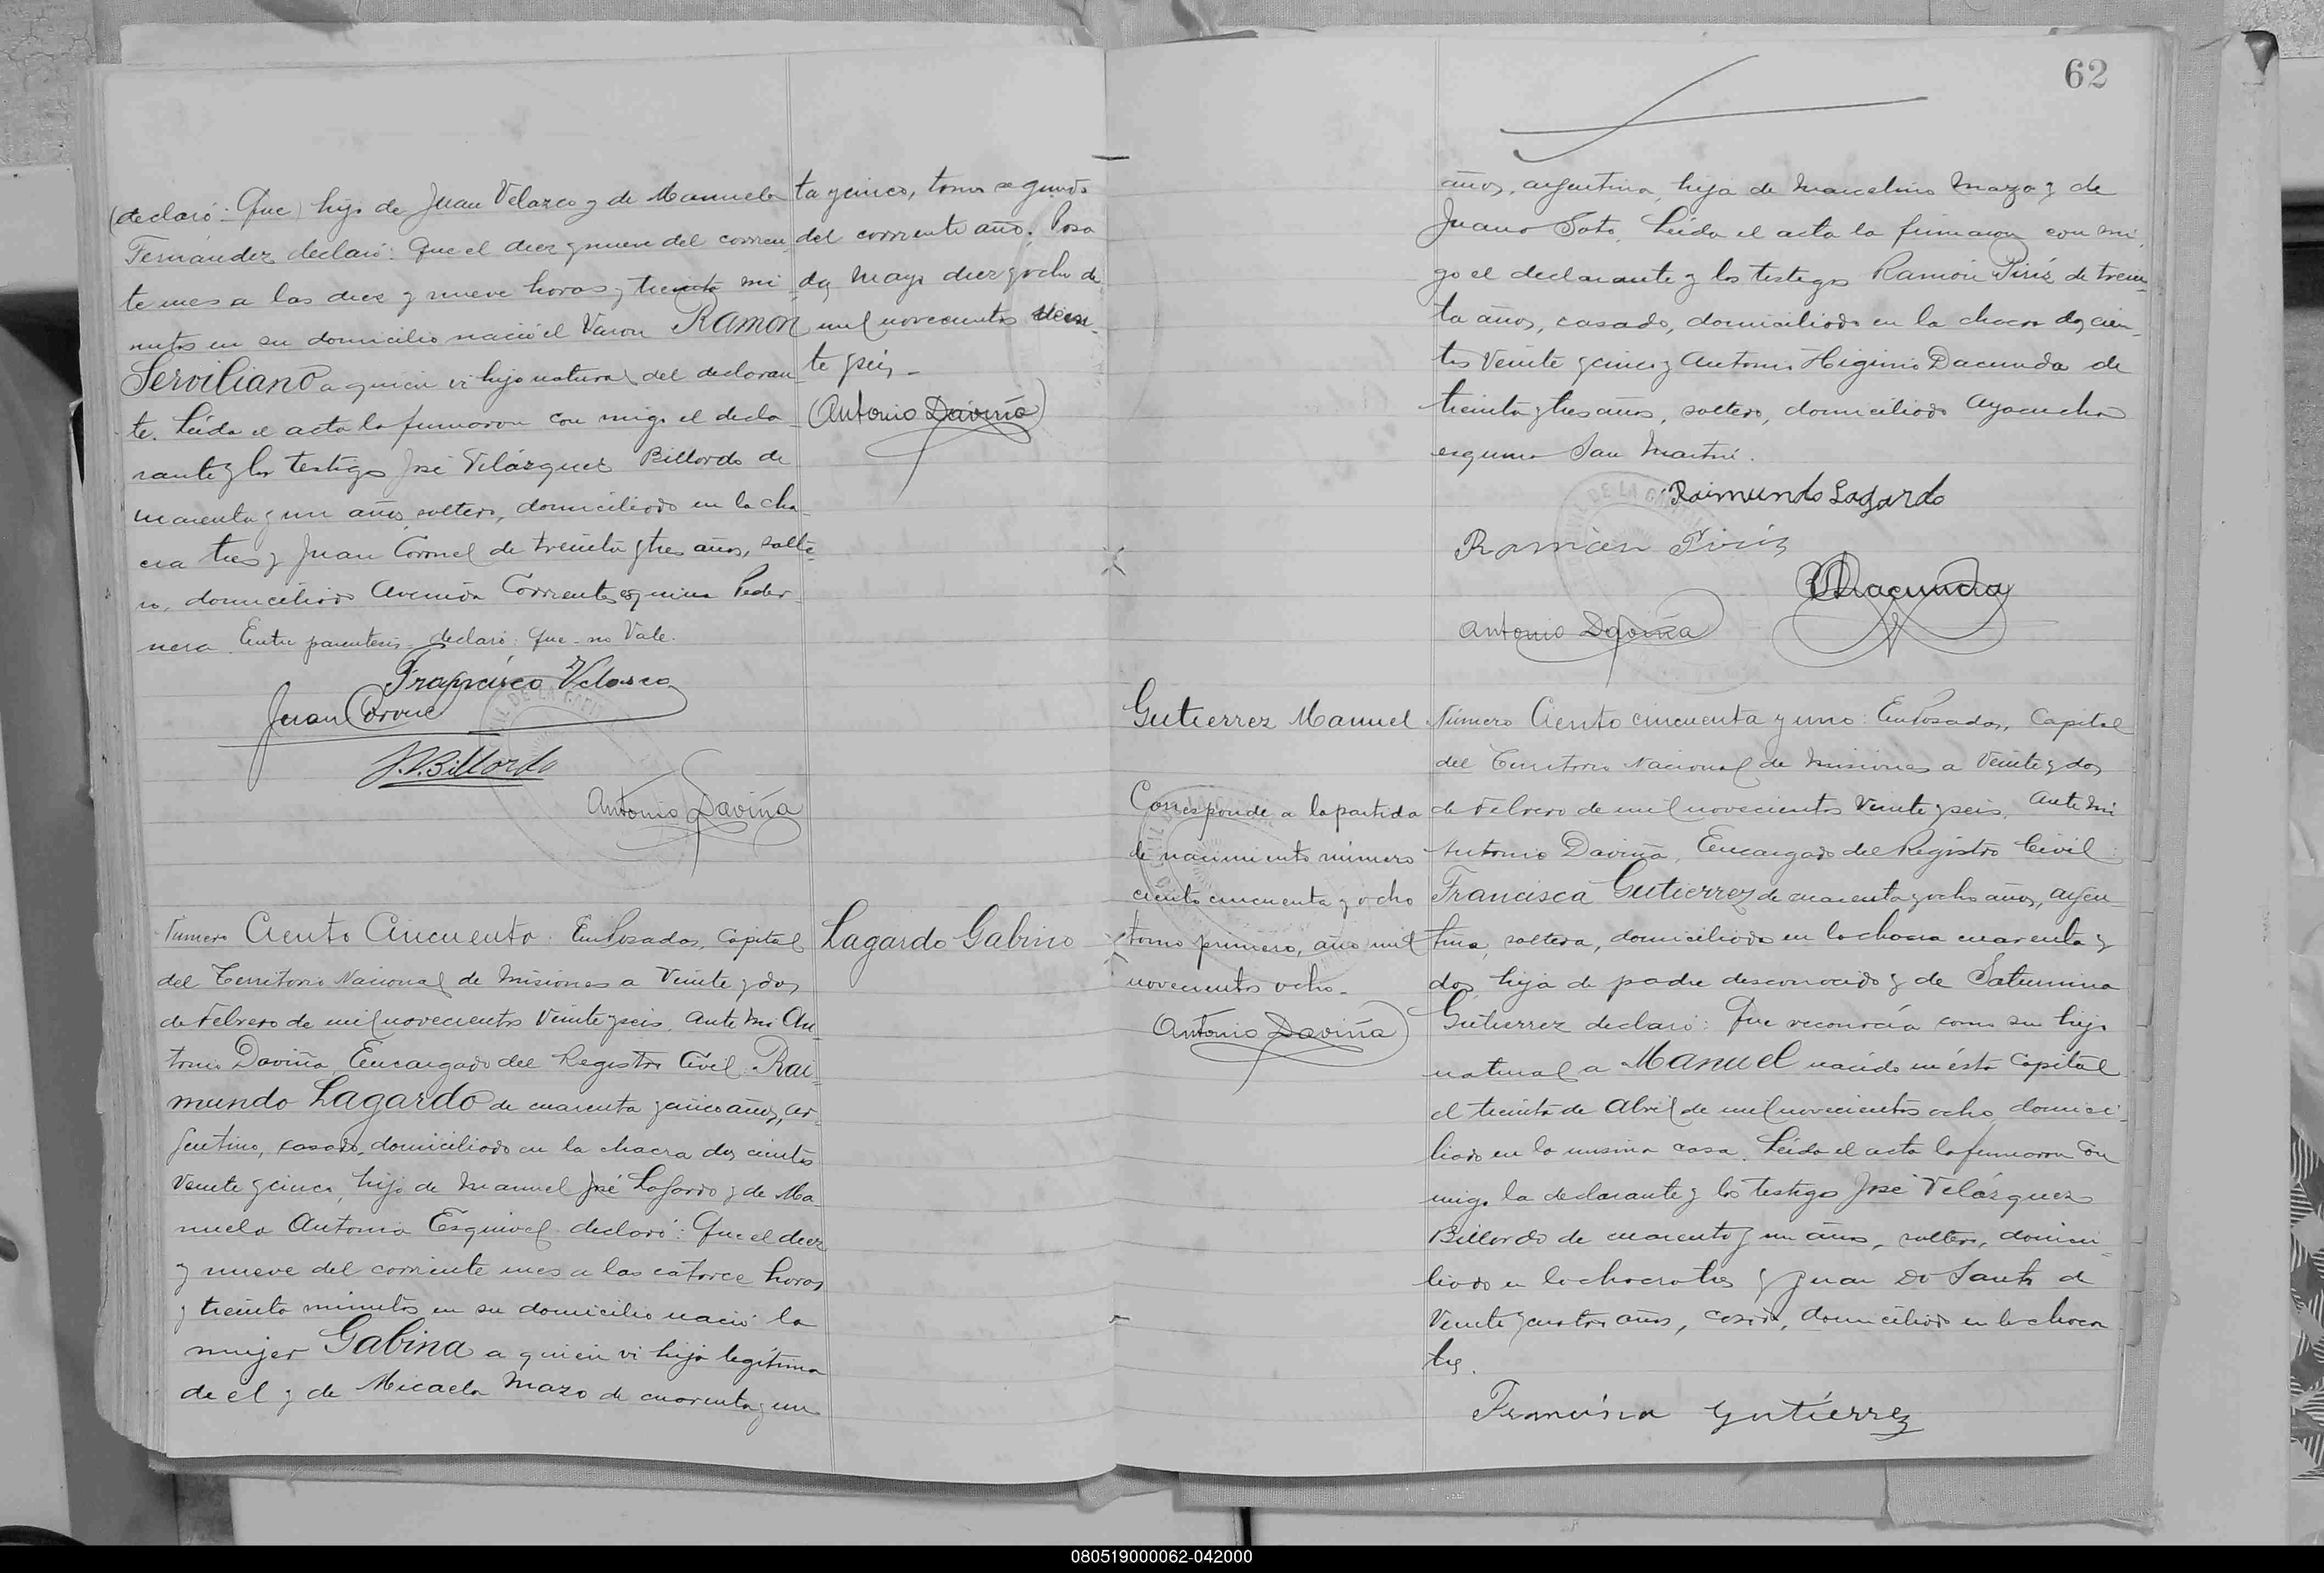 (declaró: Que) hijo de Juan Velazco y de Manuela
Fernández declaró: Que el diez y nueve del corrien-
te mes a las diez y nueve horas y treinta mi-
nutos en su domicilio nació el Varon Ramon
Serviliano a quien vi hijo natural del declaran-
te. Leída el acta la firmaron con migo el decla-
rante y los testigos José Velázquez Billordo de
cuarenta y un años, soltero, domiciliado en la cha-
cra tres y Juan Coronel de treinta y tres años, solte-
ro, domiciliado Avenida Corrientes esquina Peder-
nera. Entre parentesis - declaró: Que - no Vale.
Francisco Velasco
Juan Coronel
J.V. Billordo
Antonio Daviña
ta y cinco, tomo segundo
del corriente año. Posa
das, Mayo diez y ocho de
mil novecientos vein-
te y seis -
Antonio Daviña
Número Ciento Cincuenta: En Posadas, Capital
del Territorio Nacional de Misiones a Veinte y dos
de Febrero de mil novecientos Veinte y seis. Ante mi An-
tonio Daviña, Encargado del Registro Civil: Rai-
mundo Lagardo de cuarenta y cinco años, ar-
gentino, casado, domiciliado en la chacra dos cientos
Veinte y cinco, hijo de Manuel José Lagardo y de Ma-
nuela Antonia Esquivel declaró: Que el diez
y nueve del corriente mes a las catorce horas
y treinta minutos en su domicilio nació la
mujer Gabina a quien vi hija legítima
de el y de Micaela Mazo de cuarenta y un
Lagardo Gabino
62
años, argentina, hija de Marcelino Mazo y de
Juana Soto. Leída el acta la firmaron con mi-
go el declarante y los testigos Ramón Piris de trein-
ta años, casado, domiciliado en la chacra dos cien-
tos Veinte y cinco y Antonio Higinio Dacunda de
treinta y tres años, soltero, domiciliado Ayacucho
esquina San Martín.
Raimundo Lagardo
Ramón Piris
Dacunda
Antonio Daviña
Gutierrez Manuel
Corresponde a la partida
de nacimiento número
ciento cincuenta y ocho
tomo primero, año mil
novecientos ocho -
Antonio Daviña
Número Ciento cincuenta y uno: En Posadas, Capital
del Territorio Nacional de Misiones a Veinte y dos
de Febrero de mil novecientos Veinte y seis. Ante mi
Antonio Daviña, Encargado del Registro Civil:
Francisca Gutierrez de cuarenta y ocho años, argen-
tina, soltera, domiciliada en la chacra cuarenta y
dos, hija de padre desconocido y de Saturnina
Gutierrez declaró: Que reconocía como su hijo
natural a Manuel nacido en ésta Capital
el treinta de Abril de mil novecientos ocho, domici-
liado en la misma casa. Leída el acta la firmaron con
migo la declarante y los testigos José Velázquez
Billordo de cuarenta y un años, soltero, domici-
liado en la chacra tres y Juan Do Santo de
Veinte y cuatro años, casado, domiciliado en la chacra
tres.
Francisca Gutiérrez
080519000062-042000